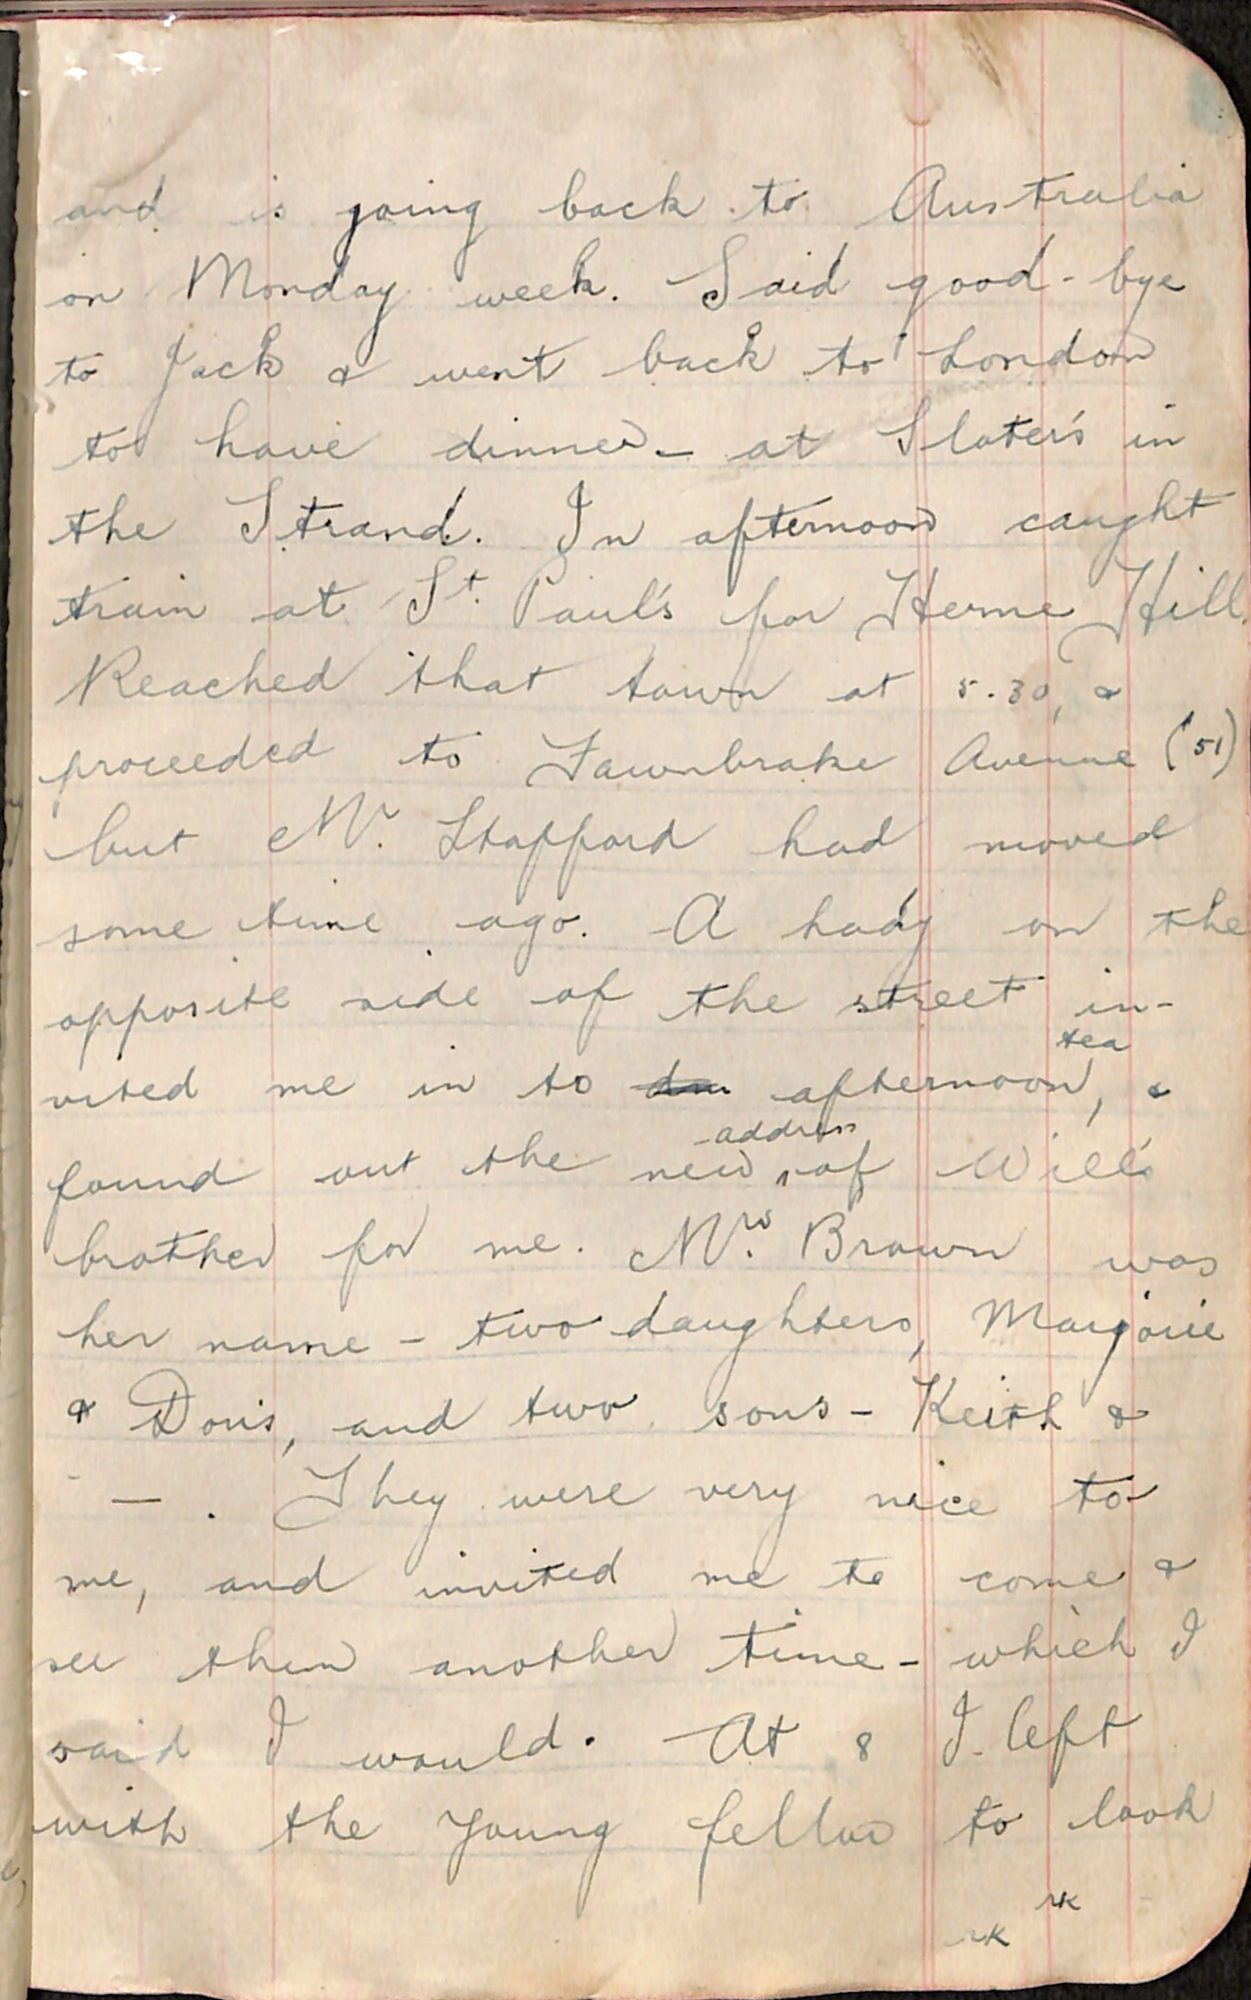 and is going back to Australia
on Monday week. Said good-bye
to Jack & went back to London
to have dinner - at Slater's in
the Strand. In afternoon caught
train at St. Paul's for Herne Hill.
Reached that town at 5.30, &
proceeded to Fawnbrake Avenue (51)
but Mr. Stafford had moved
some time ago. A lady on the
opposite side of the street in-
tea
vited me in to afternoon, &
address
found out the new of Will's
brother for me. Mrs. Brown was
her name - two daughters, Marjorie
& Doris, and two sons - Keith &
- . They were very nice to
me, and invited me to come &
see them another time - which I
said I would. At 8 I left
with the young fellow to look